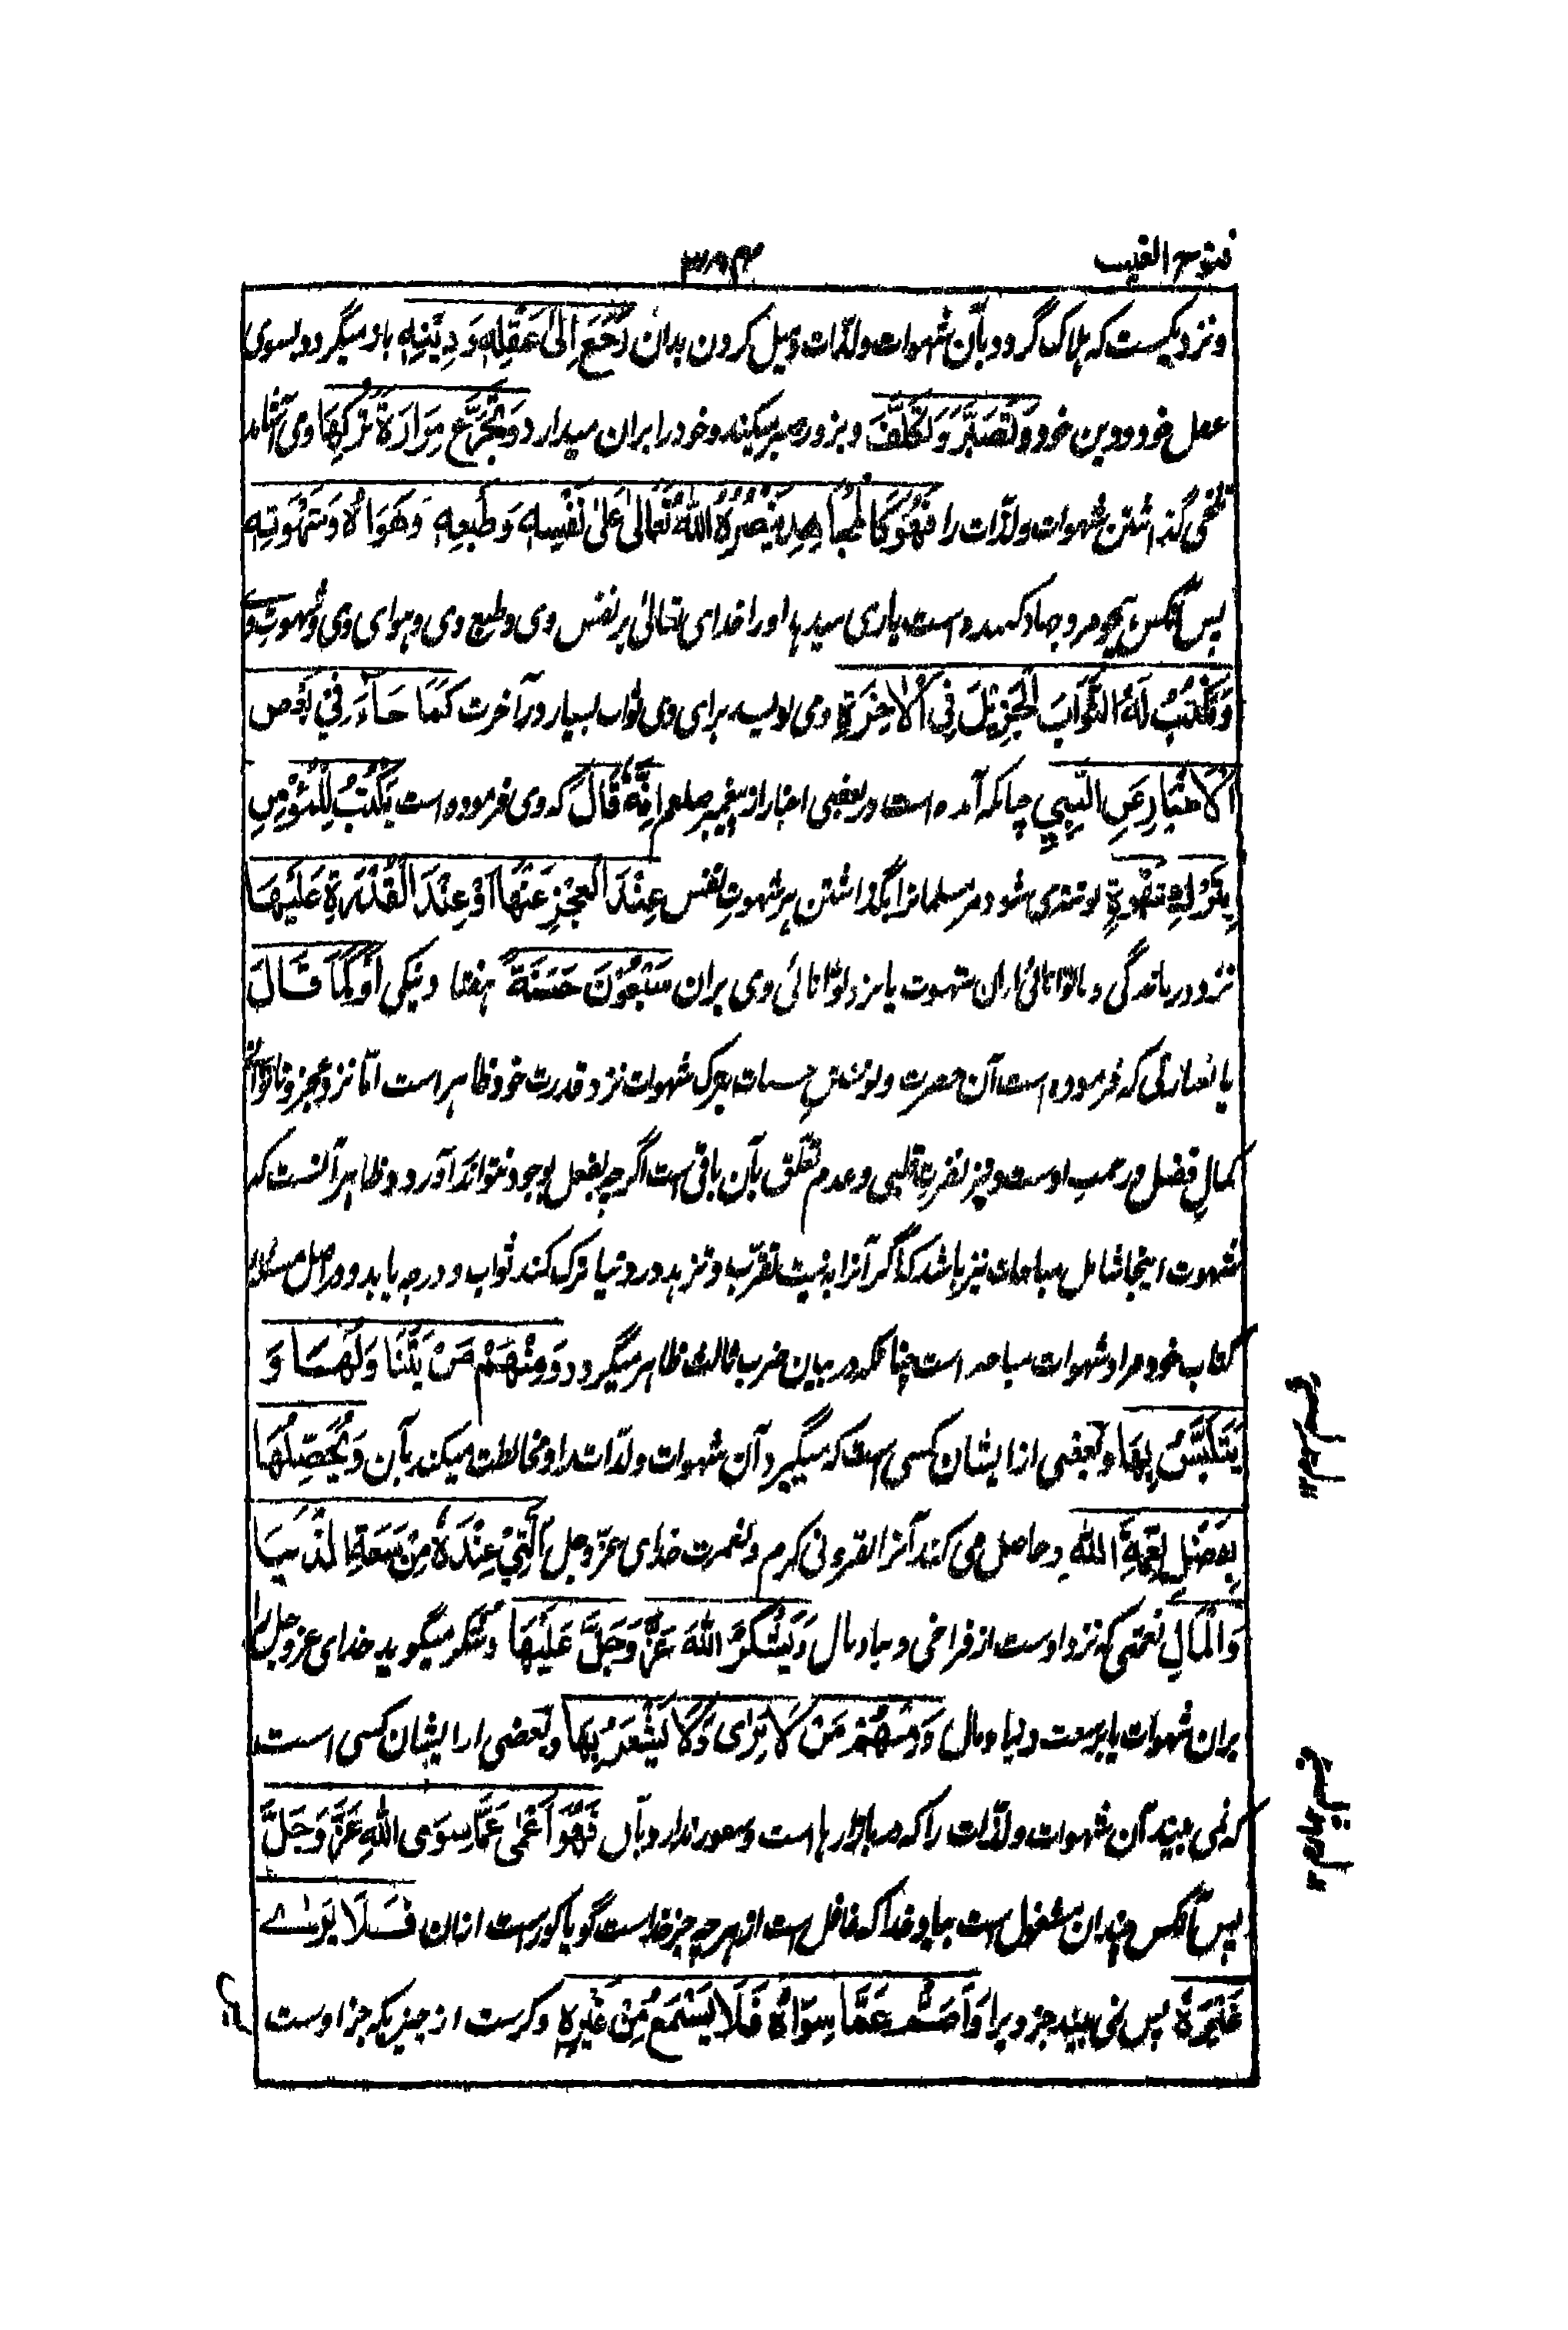 فتوح الغیب
ونزدیکست که هلاک گردد بآن شهوات ولذّات ومیل کردن بدان رَجَعَ اِلٰی عَقْلِهٖ وَ دِیْنِهٖ باز میگردد بسوی
عقل خود ودین خود وَتَصَبَّرَ وَتَکَلَّفَ وبزور صبر میکند وخود را بران میدارد وَتَجَرَّعَ مِرَارَةَ تَرْکِهَا ومی آشامد
تلخی گذاشتن شهوات ولذّات را فَهُوَ کَالْمُجَاهِدِ یَنْصُرُهُ اللّٰهُ تَعَالٰی عَلٰی نَفْسِهٖ وَطَبْعِهٖ وَهَوَاهُ وَشَهْوَتِهٖ
پس آنکس همچو مرد جهاد کننده است یاری میدهد او را خدای تعالیٰ بر نفس وی وطبع وی وهوای وی وشهوت وی
وَیَکْتُبُ لَهُ الثَّوَابَ الْجَزِیْلَ فِی الْاٰخِرَةِ ومی نویسد برای وی ثواب بسیار در آخرت کَمَا جَاءَ فِیْ بَعْضِ
الْاَخْبَارِ عَنِ النَّبِیِّ چنانکه آمده است در بعضی اخبار از پیغمبر صلعم اِنَّهٗ قَالَ که وی فرموده است یُکْتَبُ لِلْمُؤْمِنِ
بِتَرْکِ شَهْوَةٍ نوشته می شود مر مسلمانرا بگذاشتن هر شهوت نفس عِنْدَ الْعَجْزِ عَنْهَا اَوْ عِنْدَ الْقُدْرَةِ عَلَیْهَا
نزد درماندگی وناتوانائی ازان شهوت یا نزد توانائی وی بران سَبْعُوْنَ حَسَنَةً هفتاد نیکی اَوْ کَمَا قَالَ
یا که فرموده است آن حضرت ونوشتن حسنات بترک شهوات نزد قدرت خود ظاهر است امّا نزد عجز وناتوانی
کمال فضل ورحمت اوست ونیز نفرت قلبی وعدم تعلّق بآن باقی است اگرچه بفعل بوجود نتواند آورد وظاهر آنست که
شهوت اینجا شامل مباحات نیز باشد که اگر آنرا به نیت تقرّب وتزهد در دنیا ترک کند ثواب ودرجه یابد ودر اصل
کتاب خود مراد شهوات مباحه است چنانکه در بیان ضرب ثالث ظاهر میگردد وَمِنْهُمْ مَنْ یَتَنَاوَلُهَا وَ
یَتَلَبَّسُ بِهَا وبعضی از ایشان کسی است که میگیرد آن شهوات ولذّات را ومخالطت میکند بآن وَیُحَصِّلُهَا
بِفَضْلِ نِعْمَةِ اللّٰهِ وحاصل می کند آنرا بفزونی کرم ونعمت خدای عزّوجل الَّتِیْ عِنْدَهٗ مِنْ سَعَةِ الدُّنْیَا
وَالْمَالِ نعمتی که نزد اوست از فراخی دنیا ومال وَیَشْکُرُ اللّٰهَ عَزَّ وَجَلَّ عَلَیْهَا وشکر میگوید خدای عزوجل را
بران شهوات یا بر سعت دنیا ومال وَمِنْهُمْ مَنْ لَا یَرٰی وَلَا یَشْعُرُ بِهَا وبعضی از ایشان کسی است
که نمی بیند آن شهوات ولذّات را که در بازارها است وشعور ندارد بآں فَهُوَ اَعْمٰی عَمَّا سِوَی اللّٰهِ عَزَّ وَجَلَّ
پس آنکس چندان مشغول است بیاد خدا که غافل است از هرچه جز خداست گویا کور است ازان فَلَا یَرٰے
غَیْرَهٗ پس نمی بیند جز ویرا وَاَصَمُّ عَمَّا سِوَاهُ فَلَا یَسْمَعُ مِنْ غَیْرِهٖ وکرست از چیزیکه جز اوست